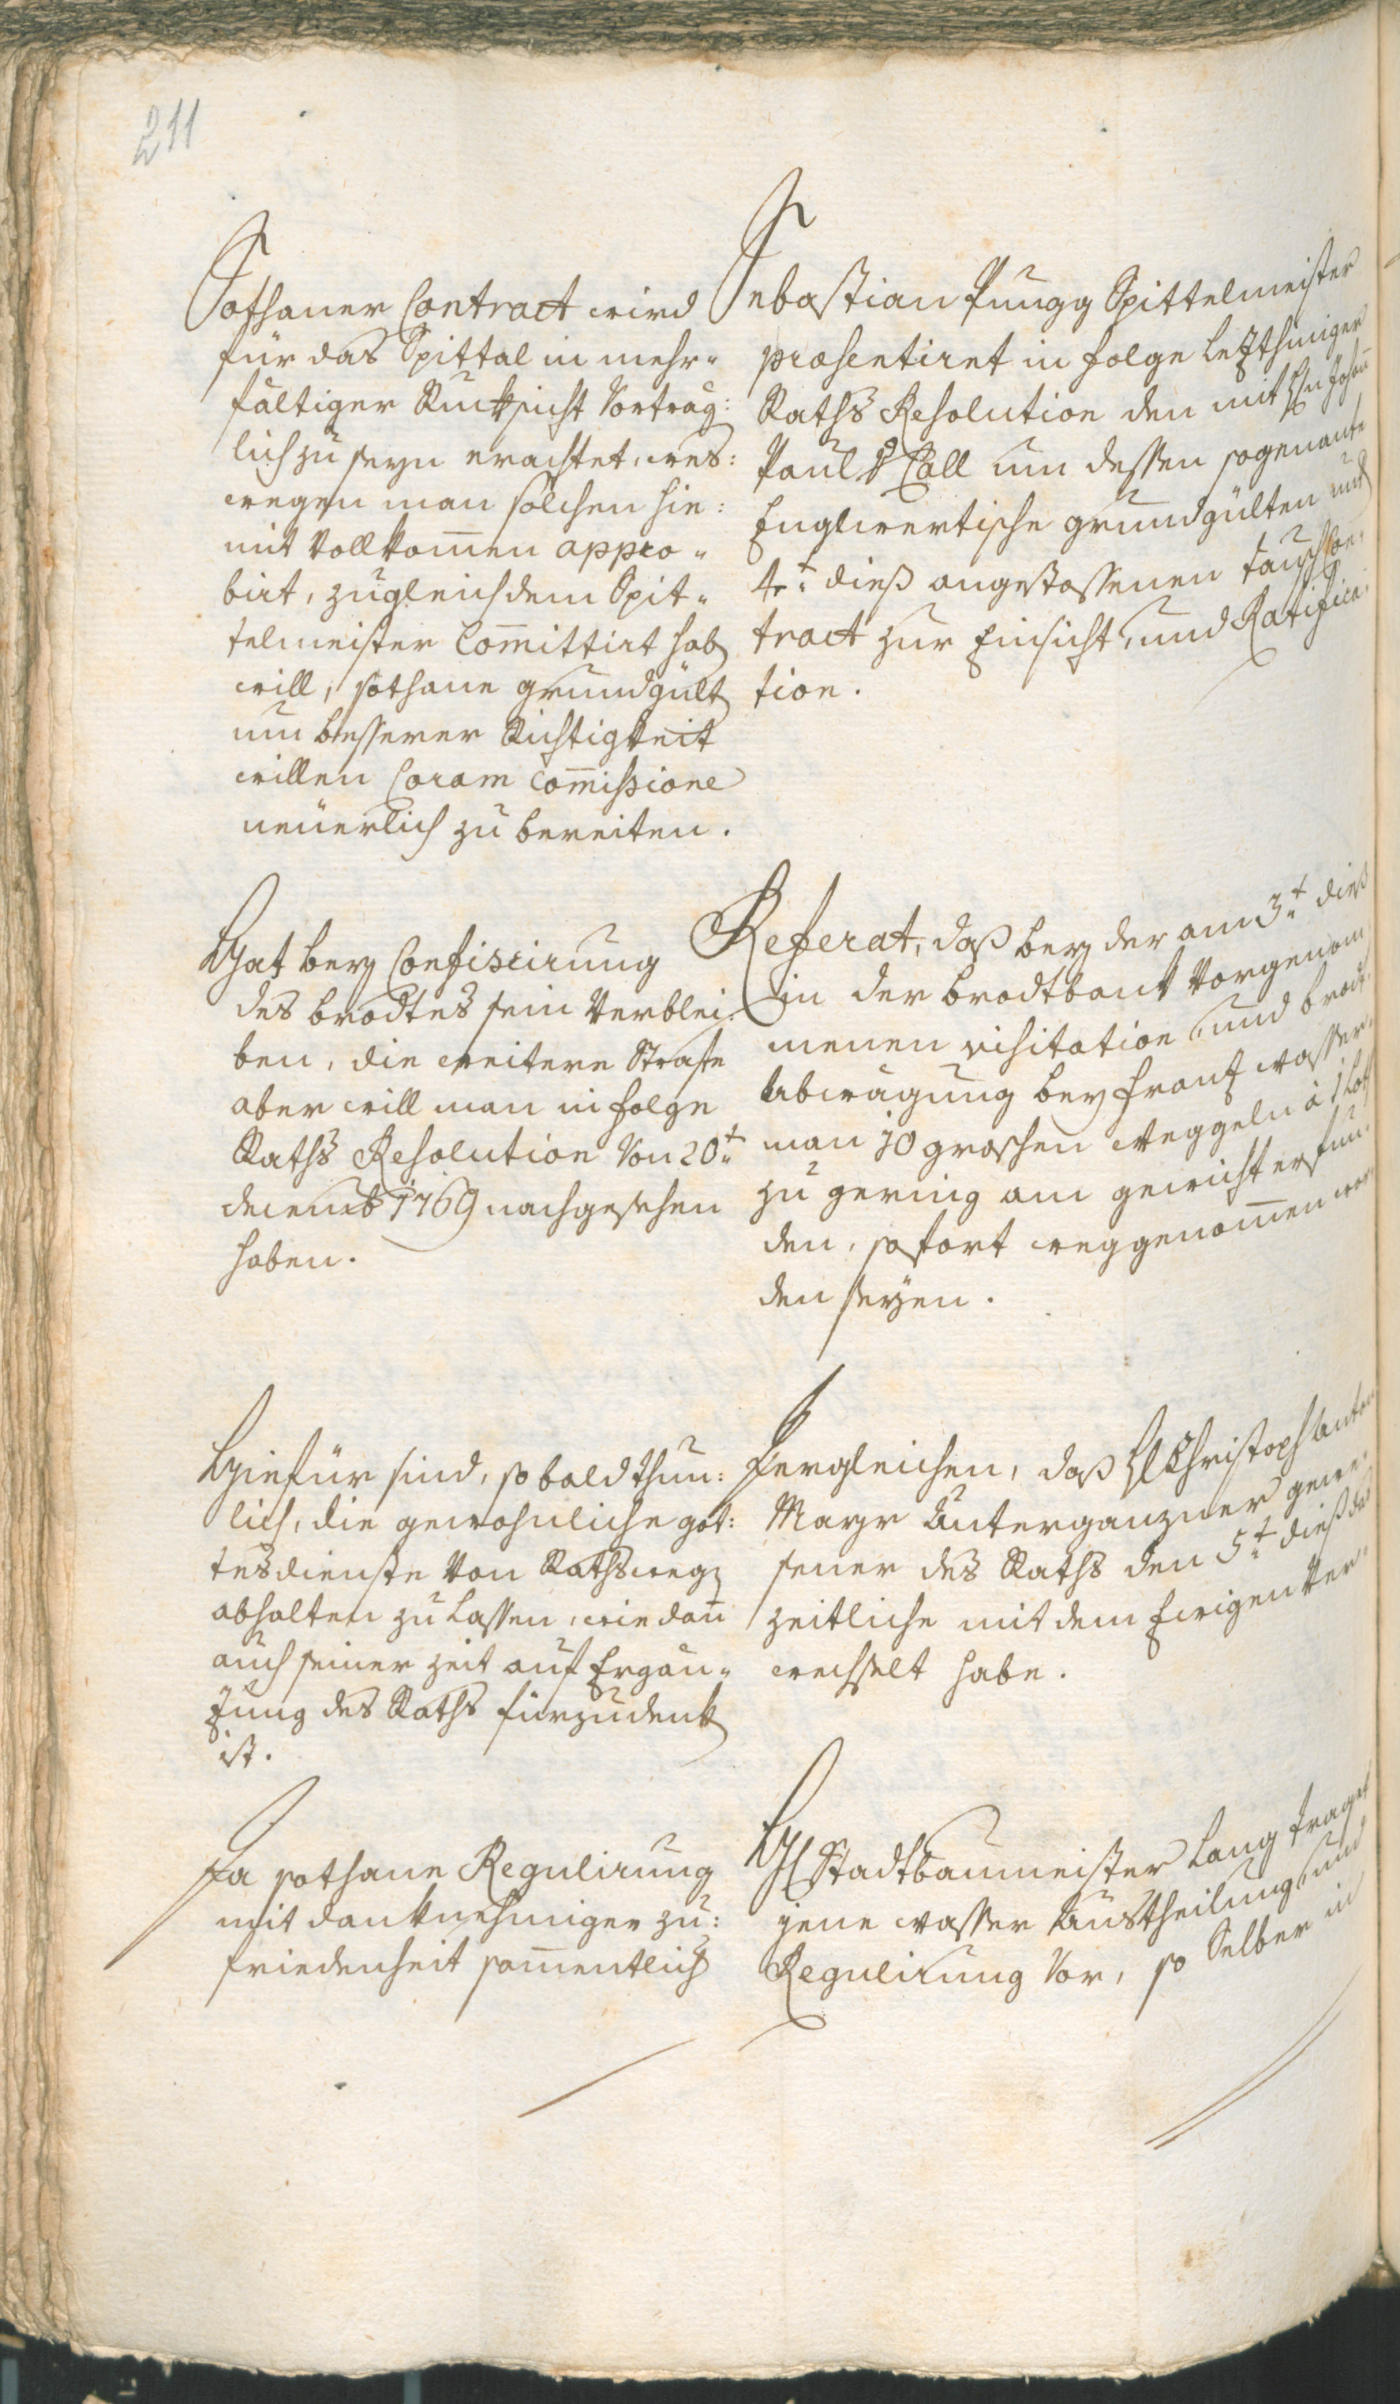 211
Sothaner Contract wird
für das Spittal in mehr-
fältiger Rucksicht Vorträg:
lich zu seyn erachtet, wes:
wegen man solchen hie:
mit Vollkom̄en appro-
birt, zugleich dem Spit-
telmeister Com̄ittirt hab
will, sothane grundgült
um besserer Richtigkeit
willen Coram Com̄issione
neüerlich zu bereiten.
Sebastian Pungg Spittelmeister
præsentiret in folge letzthiniger
Raths Resolution den mit Hrn Johan̄
Paul Call um dessen sogenante
Englwertische grundgülten und
4t: dieß angestossenen tausch Con-
tract zur Einsicht, und Ratifica-
tion.
Hat bey Confiscirung
des brodtes sein Verblei-
ben, die weitere Strafe
aber will man in folge
Raths Resolution Von 20t:
decemb 1769 nachgesehen
haben.
Referat, daß bey der am 3t: dieß
in der brodtbank Vorgenom̄
menen visitation und brodt
Abwägung bey Frantz Wasser-
man 10 groschen Weggeln à 1 Loth
zu gering am gewicht erfun-
den, sofort weggenom̄en wor-
den seyen.
Hiefür sind, so bald thun:
lich, die gewohnliche got:
tesdienste Von Rathsweg
abhalten zu Lassen, wie dan̄
auch seiner zeit auf Ergän-
zung des Raths fürzudenk
ist.
Dergleichen, daß H Christoph Anton
Mayr Unterganzner gewe-
sener des Raths den 5t: dieß das
zeitliche mit dem Ewigen Ver-
wechslet habe.
Da sothane Regulirung
mit danknehmiger zu:
friedenheit sam̄entlich
H Stadtbaumeister Lang traget
jene wasser Austheilung, und
Regulirung Vor, so Selber in